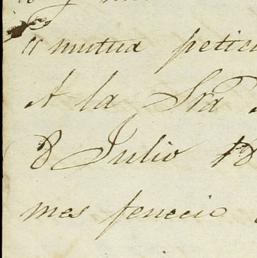 a mutua petici
A la Sra
8 Julio 18
mes fenecio